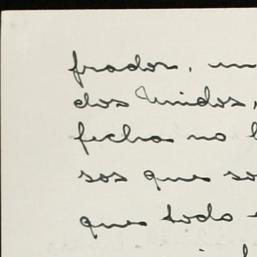 frador, um
dos Unidos,
fecha no
sos que so
que todo